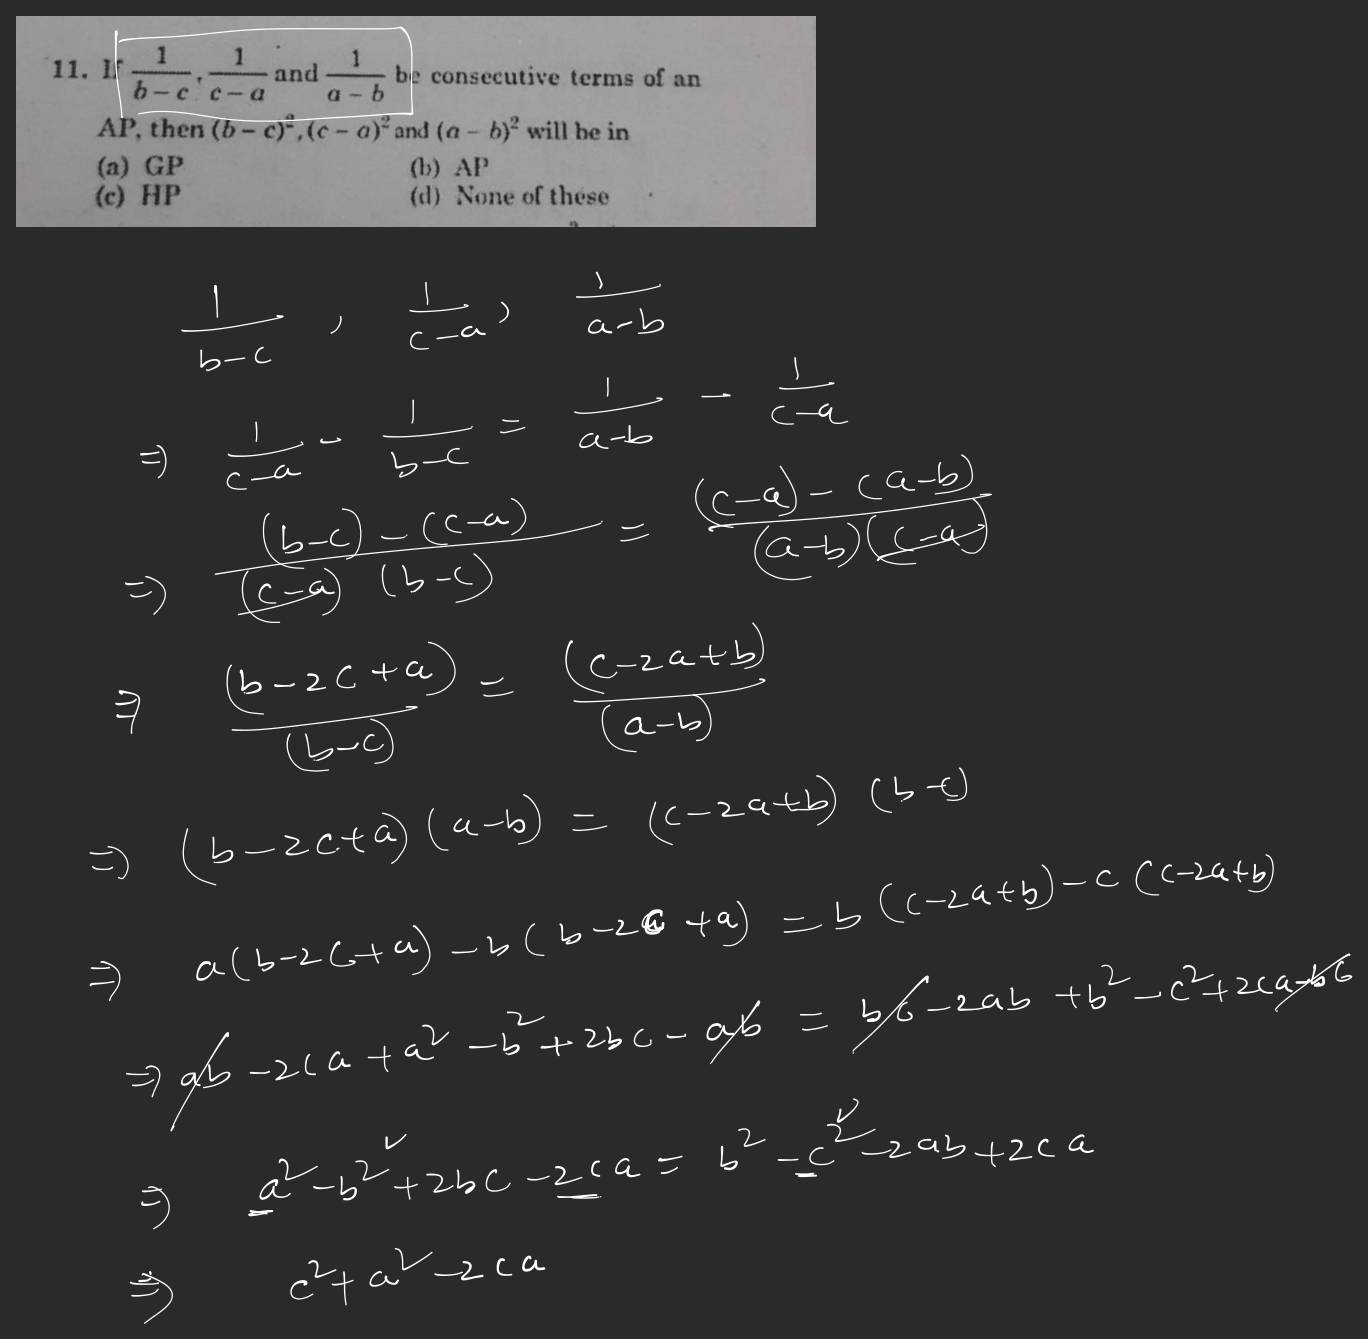 11. If 1/(b – c), 1/(c – a) and 1/(a – b) be consecutive terms of an
AP, then (b – c)², (c – a)² and (a – b)² will be in
(a) GP (b) AP
(c) HP (d) None of these
1/(b-c) , 1/(c-a) , 1/(a-b)
⇒ 1/(c-a) - 1/(b-c) = 1/(a-b) - 1/(c-a)
⇒ ((b-c) - (c-a))/((c-a) (b-c)) = ((c-a) - (a-b))/((a-b)(c-a))
⇒ (b-2c+a)/(b-c) = (c-2a+b)/(a-b)
⇒ (b-2c+a)(a-b) = (c-2a+b) (b-c)
⇒ a(b-2c+a) - b(b-2c+a) = b(c-2a+b) - c(c-2a+b)
⇒ ab - 2ca + a² - b² + 2bc - ab = bc - 2ab + b² - c² + 2ca - bc
⇒ a² - b² + 2bc - 2ca = b² - c² - 2ab + 2ca
⇒ c² + a² - 2ca